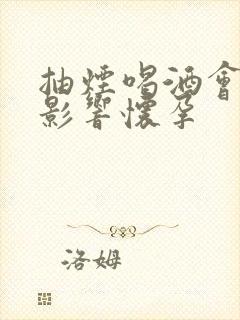 抽煙喝酒會
影響懷孕
洛姆